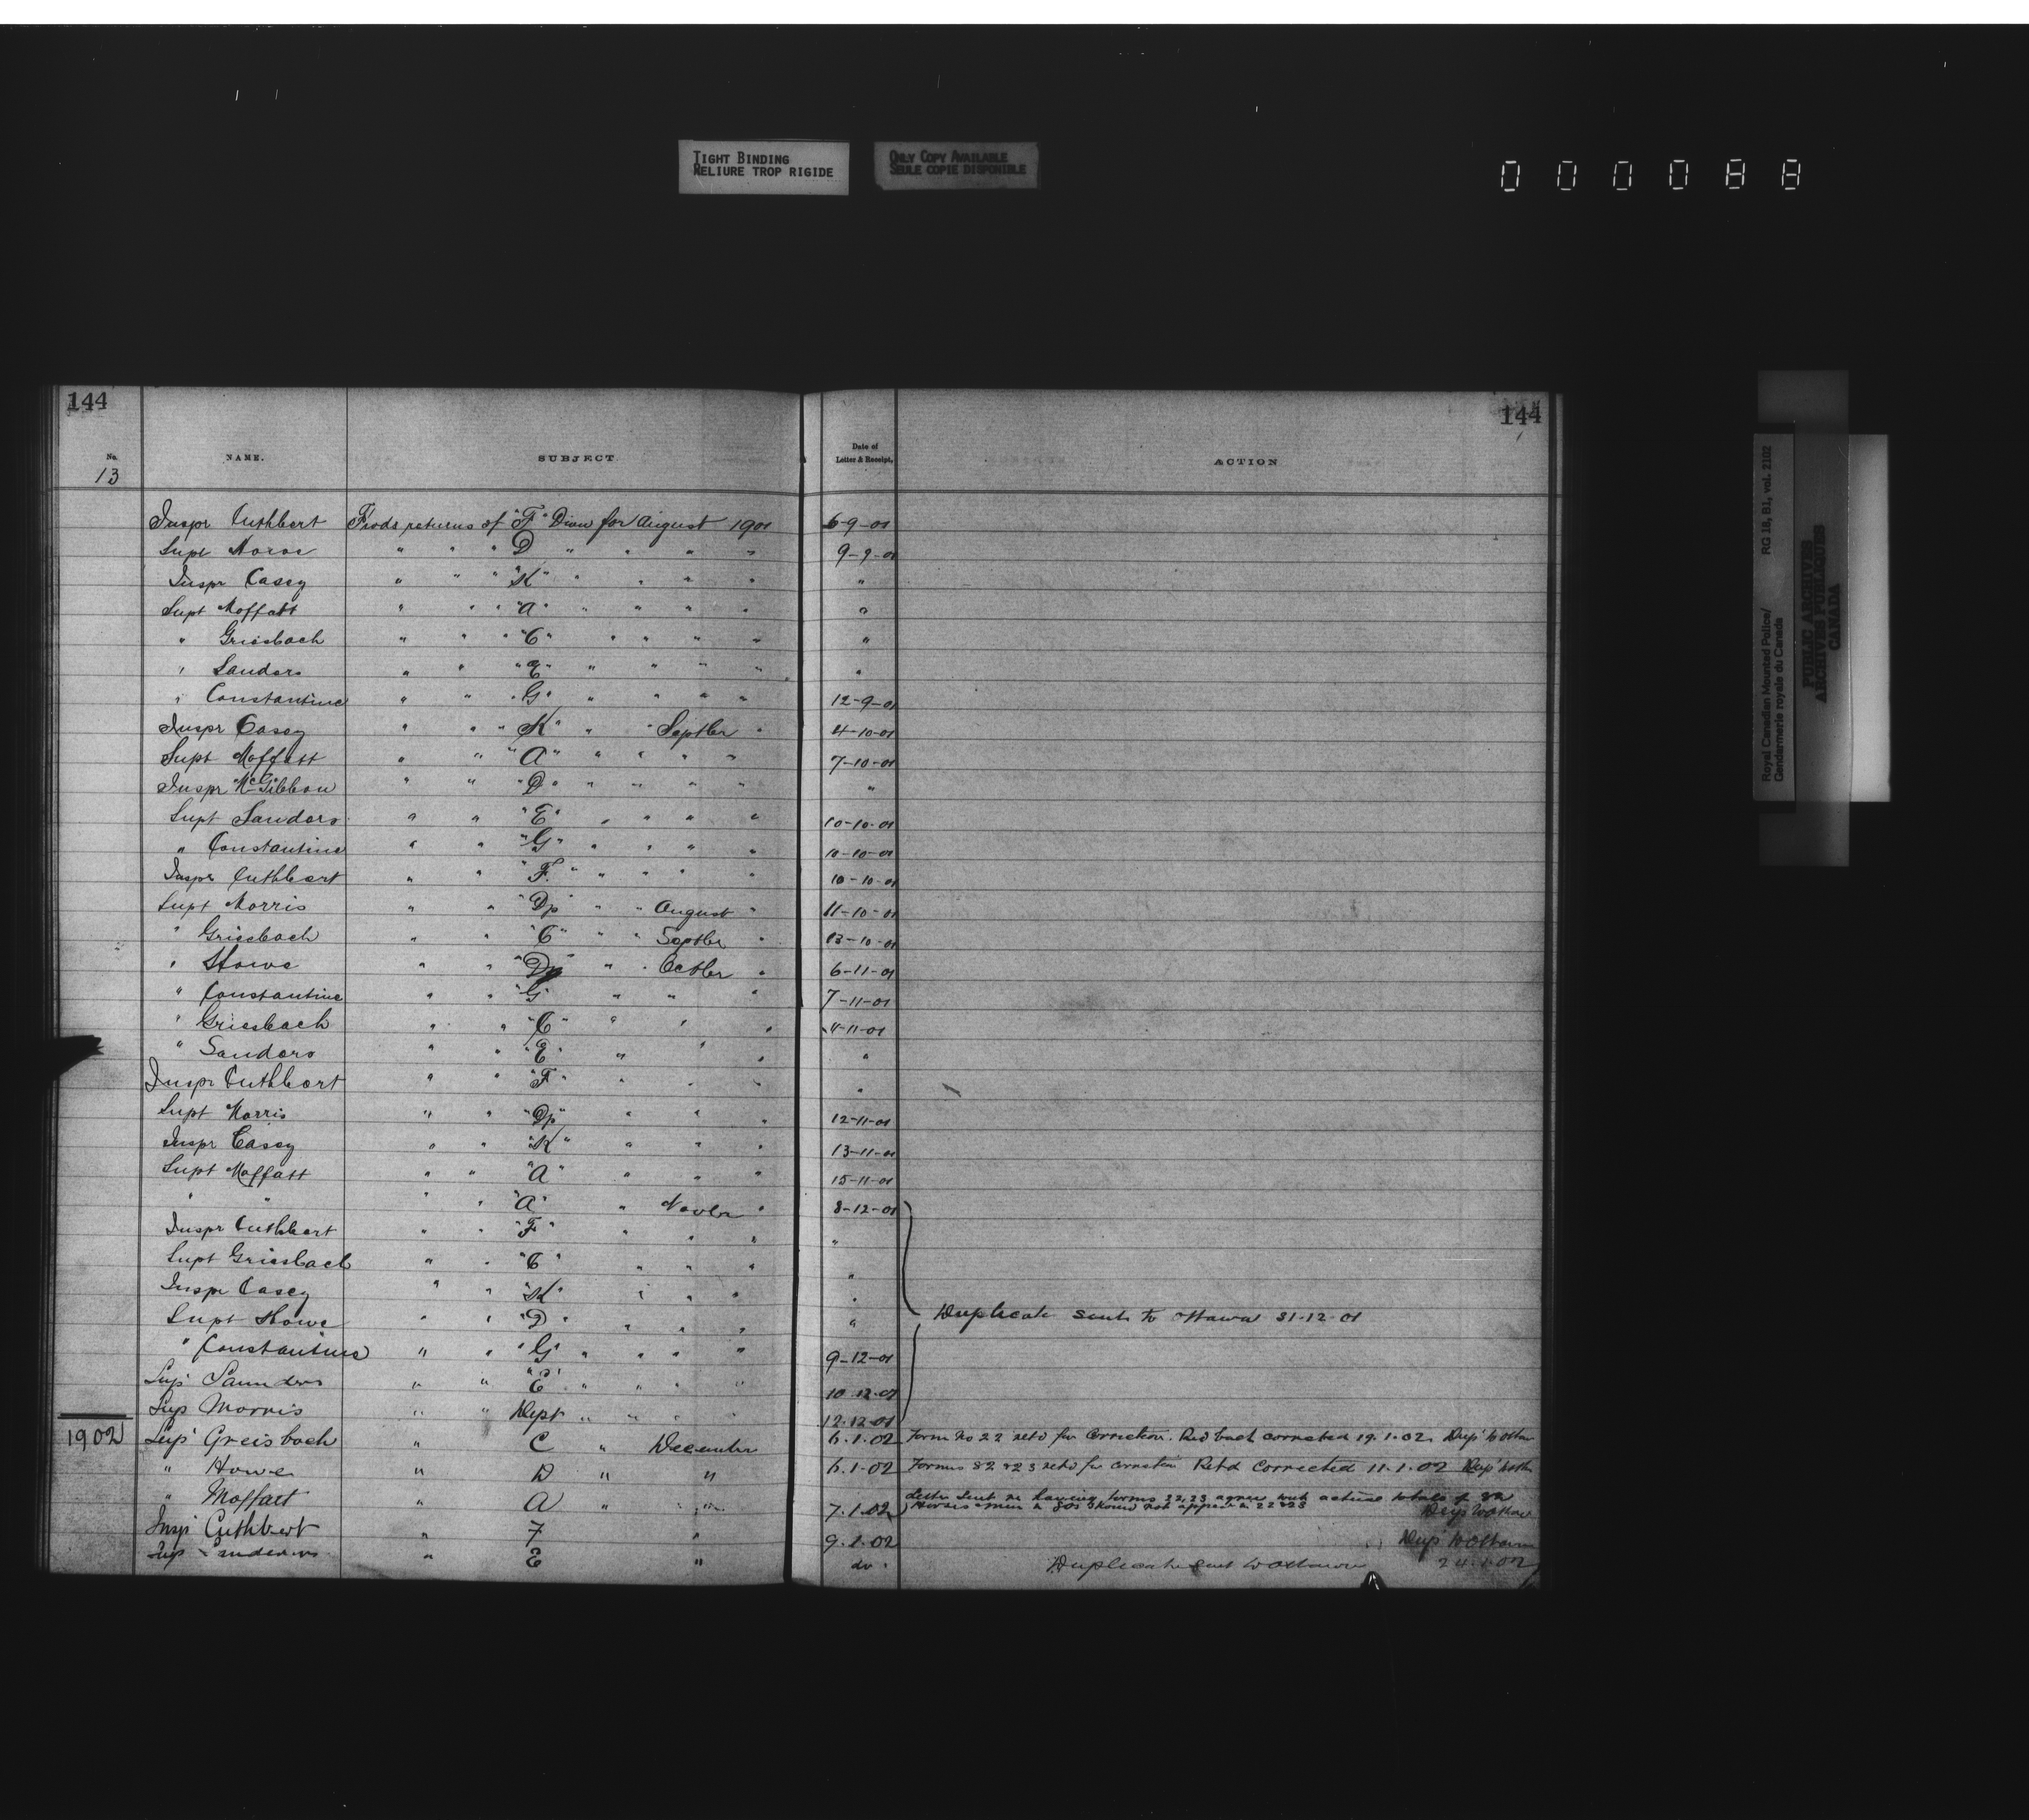 TIGHT BINDING
RELIURE TROP RIGIDE
ONLY COPY AVAILABLE
SEULE COPIE DISPONIBLE
000088
144
144
No. NAME. SUBJECT Date of Letter & Receipt. ACTION
13
Inspr Cuthbert returns of "F" Divn for August 1901 6-9-01
Supt " " " D " " " " 9-9-01
Inspr Casey " " " "K" " " " " "
Supt Moffatt " " " "A" " " " " "
" Griesbach " " " "C" " " " " "
" Sanders " " "E" " " " " "
" Constantine " " "G" " " " " 12-9-01
Inspr Casey " " " "K" " " Septber " 4-10-01
Supt Moffatt " " " "A" " " " " 7-10-01
Inspr McGibbon " " "D" " " " " "
Supt Sanders " " "E" " " " " 10-10-01
" Constantine " " "G" " " " " 10-10-01
Inspr Cuthbert " " "F" " " " " " 10-10-01
Supt Morris " " "Dp" " " August " 11-10-01
" Griesbach " " "C" " " Septber " 13-10-01
" Howe " " "D" " " Octber " 6-11-01
" Constantine " " "G" " " " 7-11-01
" Griesbach " " "C" " " " 11-11-01
" Sanders " " "E" " " " "
Inspr Cuthbert " " "F" " " " "
Supt Morris " " "Dp" " " " 12-11-01
Inspr Casey " " "K" " " " 13-11-01
Supt Moffatt " " "A" " " " 15-11-01
" " " " "A" " Novbr " 8-12-01
Inspr Cuthbert " " "F" " " " "
Supt Griesbach " " "C" " " " "
Inspr Casey " " "K" " " " "
Supt Howe " " "D" " " " " Duplicate sent to Ottawa 31-12-01
" Constantine " " "G" " " " " 9-12-01
Sup' Saunders " " "E" " " " " 10-12-01
Sup Morris " " Dept " " " " 12.12.01
1902 Sup' Greisbach " C " December 6.1.02 Form No 22 retd for correction. Recd back corrected 19.1.02. Dup' to Ottaw
" Howe " D " " 6.1.02 Forms 22 & 23 retd for correction Retd Corrected 11.1.02 Dup' to
" Moffatt " A " " 7.1.02 Letter sent re having forms 22, 23 agree with actual totals of
Horses men & should not appear in 22 & 23 Dup to Ottaw
Insp' Cuthbert " F " 9.1.02 Dup' to Ottawa
Sup Sanders " E " do. Duplicate sent to Ottawa 24.1.02
Royal Canadian Mounted Police/ RG 18, B1, vol. 2102
Gendarmerie royale du Canada
PUBLIC ARCHIVES
ARCHIVES PUBLIQUES
CANADA